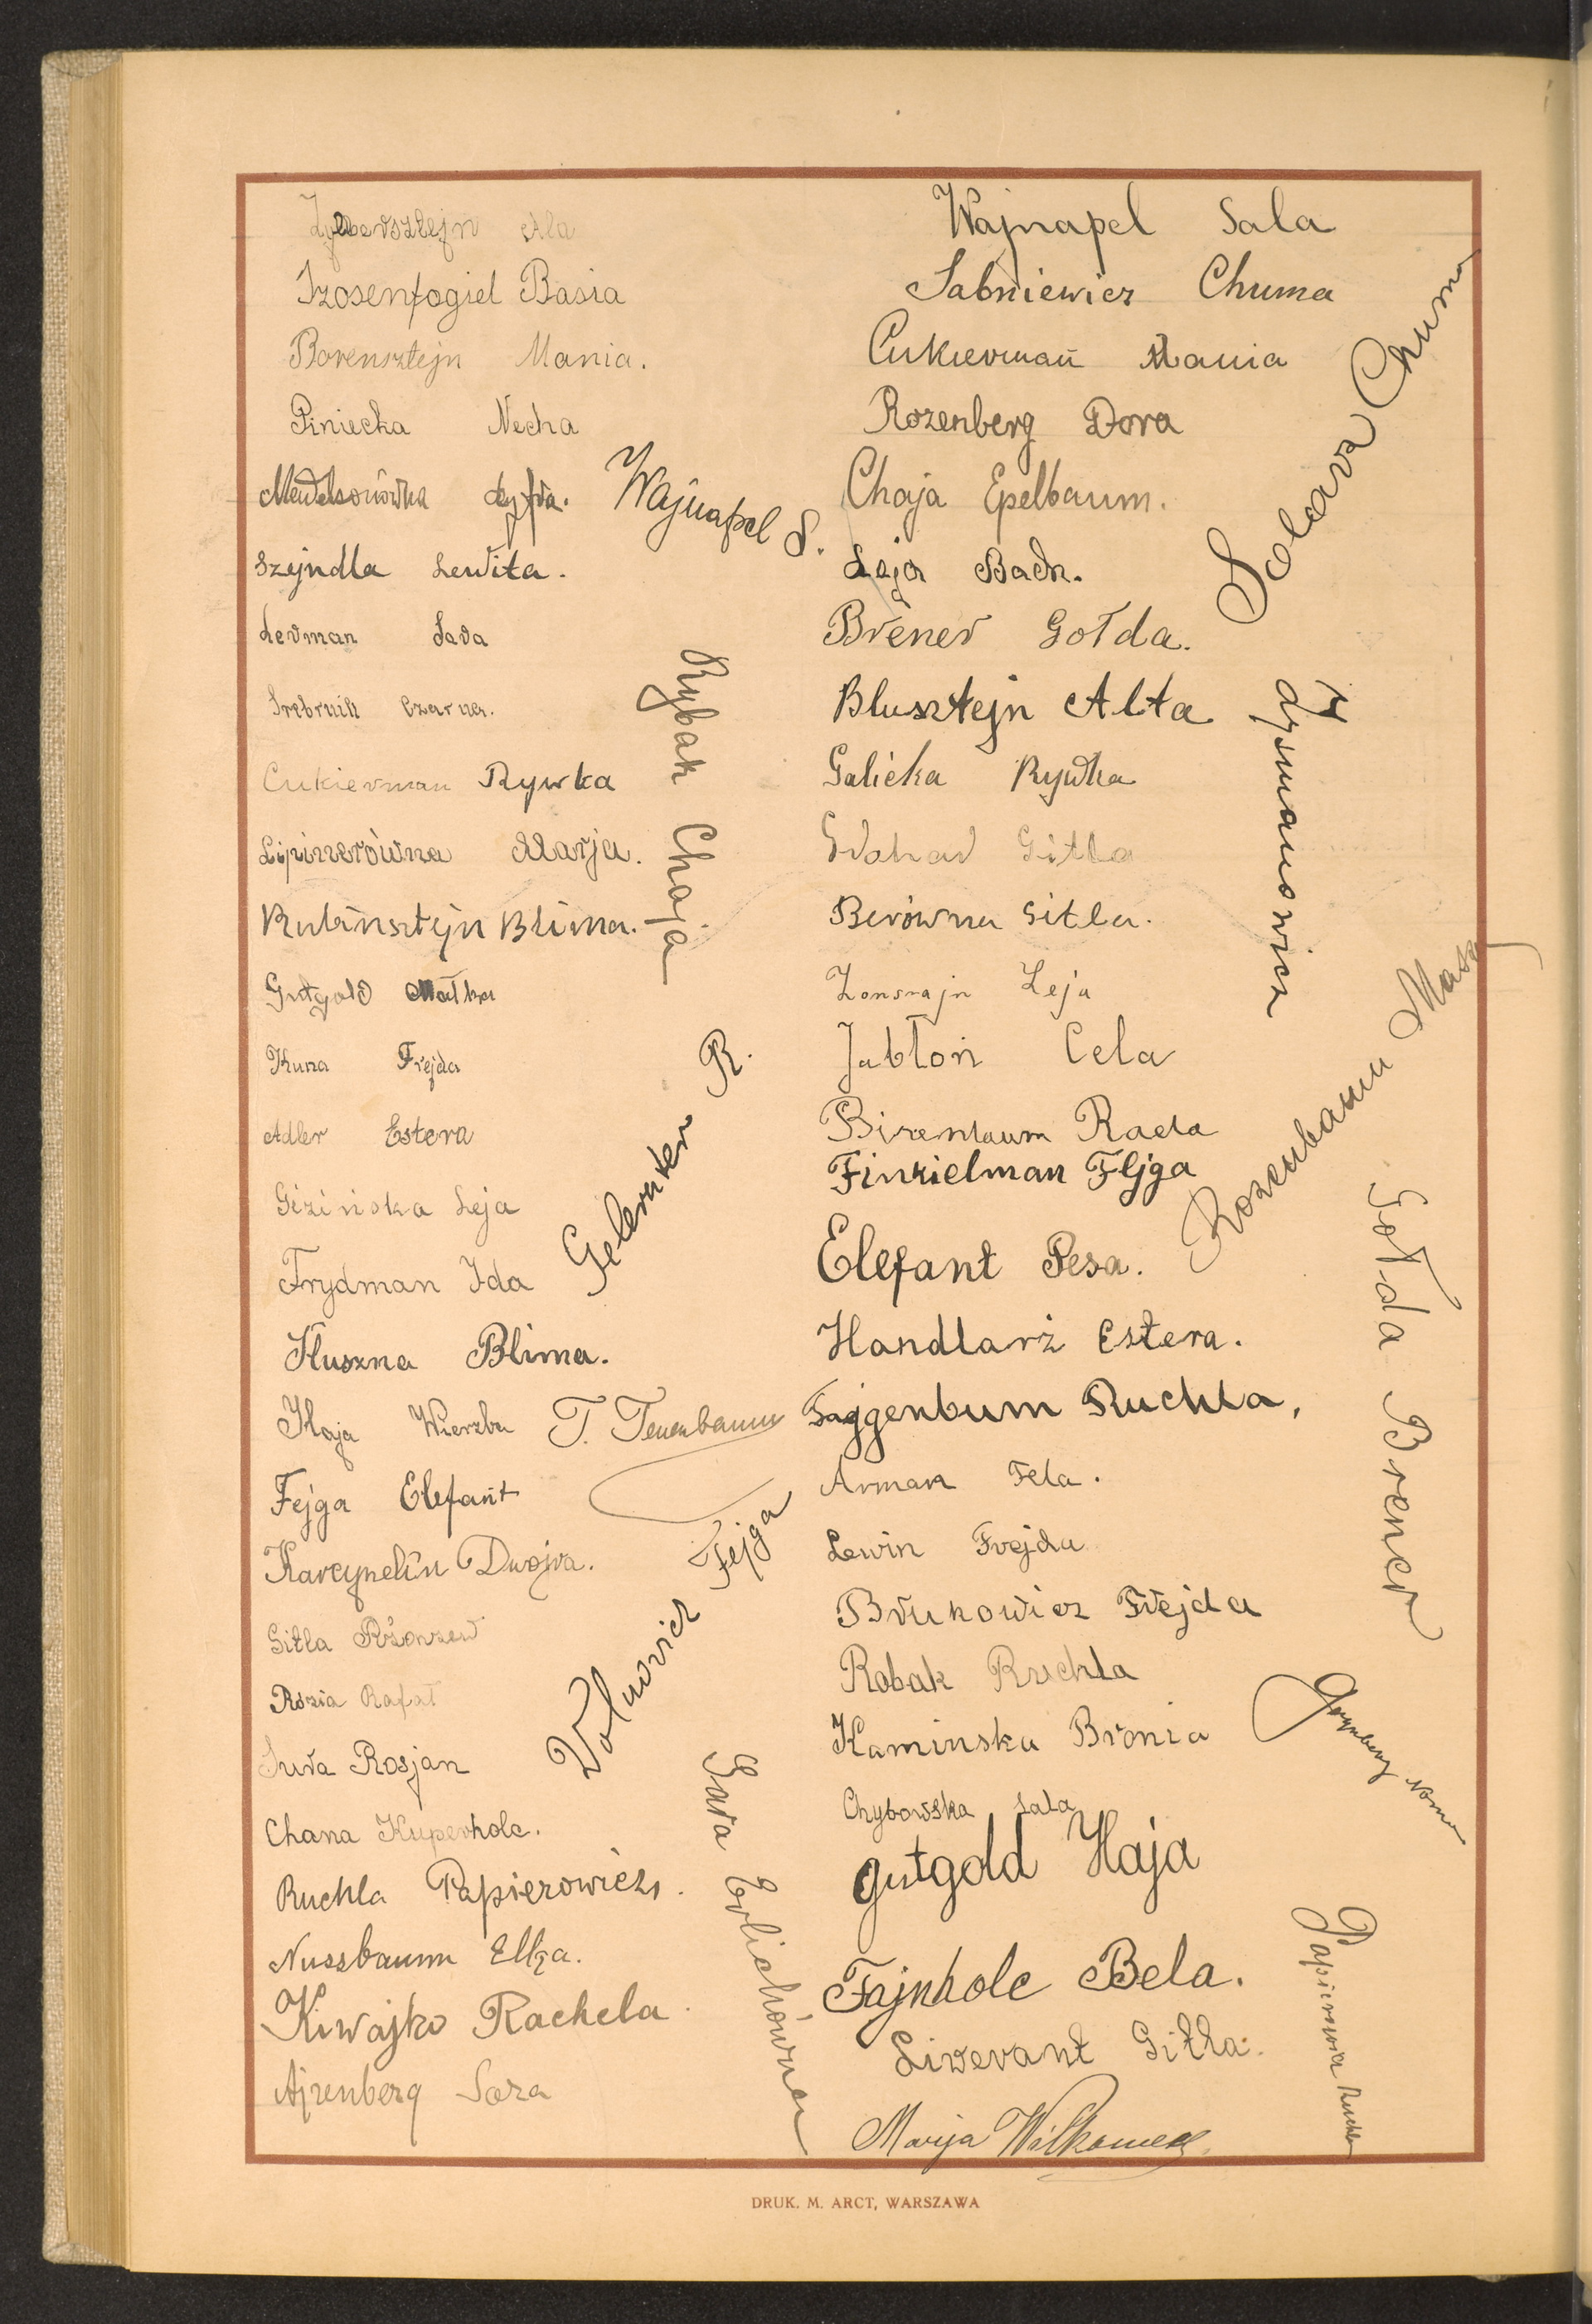 Zylbersztejn Ala
Izosenfogiel Basia
Borensztejn Mania.
Piniecka Necha
Mendelsonówna Cyfra.
Szejndla Lewita.
Lerman Sara
Srebrnik Czarna.
Cukierman Rywka
Lipinerówna Marja.
Rubinsztejn Blima.
Gutgold Małka
Kuna Frejda
Adler Estera
Gizińska Leja
Frydman Ida
Kuszna Blima.
Haja Wierzba
Fejga Elefant
Karcynelin Dwojra.
Gitla Rżonzew
Rózia Rafał
Sura Rosjan
Chana Kuperholc.
Ruchla Papierowicz.
Nussbaum Elka.
Kiwajko Rachela
Ajzenberg Sara
Wajnapel S.
Rybak Chaja
Gelernter R.
T. Tenenbaum
Wolnowicz Fejga
Sara Erlichówna
Wajnapel Sala
Sabniewicz Chuma
Cukierman Mania
Rozenberg Dora
Chaja Epelbaum.
Leja Badn.
Brener Gołda.
Blusztejn Alta
Galicka Rywka
Grabar Gitla
Berówna Gitla.
Zonszajn Leja
Jabłoń Cela
Birenbaum Rada
Finkielman Fejga
Elefant Pesa.
Handlarż Estera.
Fajgenbum Ruchla,
Arman Fela.
Lewin Frejda
Brukowicz Frejda
Robak Ruchla
Kaminska Bronia
Chybowska Sala
Gutgold Haja
Fajnholc Bela.
Liwerant Gitla.
Marja Wilkomer
Solarz Chuma
Dysmanowicz
Rozenbaum Masza
Gołda Brener
Grynberg
Papierowicz Ruchla
DRUK. M. ARCT, WARSZAWA